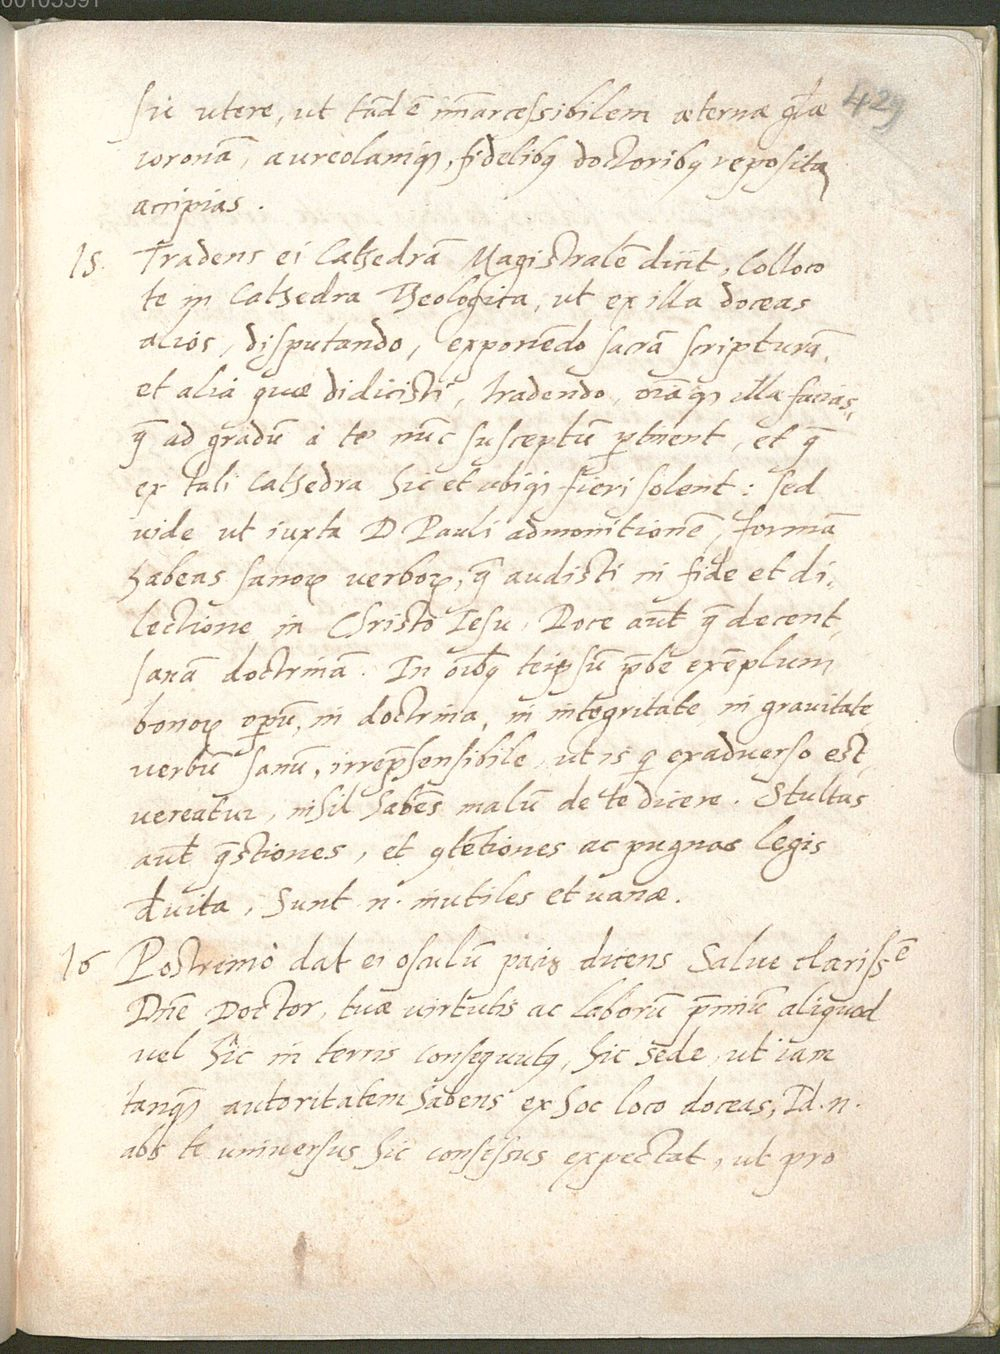 00105591
429
sic utere, ut tãdẽ im̃arcessibilem æternæ gl̃æ
coronã, aureolamq₃, fidelibꝯ doctoribꝯ reposita
accipias.
15. Tradens ei Cathedrã Magistralẽ dicit, Colloco
te in Cathedra Theologica, ut ex illa doceas
alios, disputando, exponẽdo sacrã scripturã,
et alia quæ didicisti, tradendo, oı̃aq₃ illa facias,
q̃ ad gradũ à te nũc susceptũ ꝑtinent, et q̃
ex tali Cathedra hic et ubiq₃ fieri solent: sed
vide ut iuxta D Pauli admonitionẽ, formã
habeas sanoꝝ verboꝝ, q̃ audisti in fide et di,
lectione in Christo Iesu. Doce aut̃ q̃ decent
sanã doctrinã. In oı̃bꝯ teipsũ p̃be exẽplum
bonoꝝ oꝑũ, in doctrina, in integritate in gravitate
verbũ sanũ, irrep̃hensibile, ut is q̃ exadverso est,
vereatur, nihil habẽs malũ de te dicere. Stultas
aut̃ q̃stiones, et ꝯtẽtiones ac pugnas legis
devita, Sunt .n. inutiles et vanæ.
16 Postremò dat ei osculũ pacis dicens Salve clarissẽ
Dñe Doctor, tuæ virtutis ac laborũ p̃miũ aliquod
vel hîc in terris consequutꝯ, hic sede, ut iam
tanq̃₃ autoritatem habens ex hoc loco doceas, Id .n.
abs te universus hic consessus expectat, ut pro